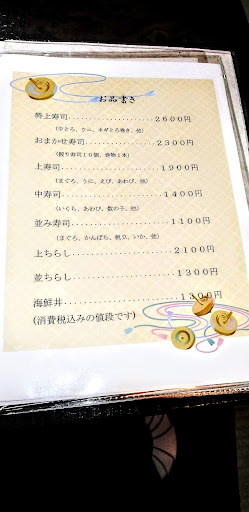 お品書き
特上寿司......................2600円
(中とろ、ウニ、ネギとろ巻き、他)
おまかせ寿司..................2300円
(握り寿司10個、巻物1本)
上寿司........................1900円
(まぐろ、うに、えび、あわび、他)
中寿司........................1400円
(いくら、あわび、数の子、他)
並み寿司......................1100円
(まぐろ、かんぱち、帆立、いか、他)
上ちらし......................2100円
並ちらし......................1300円
海鮮丼........................1300円
(消費税込みの値段です)